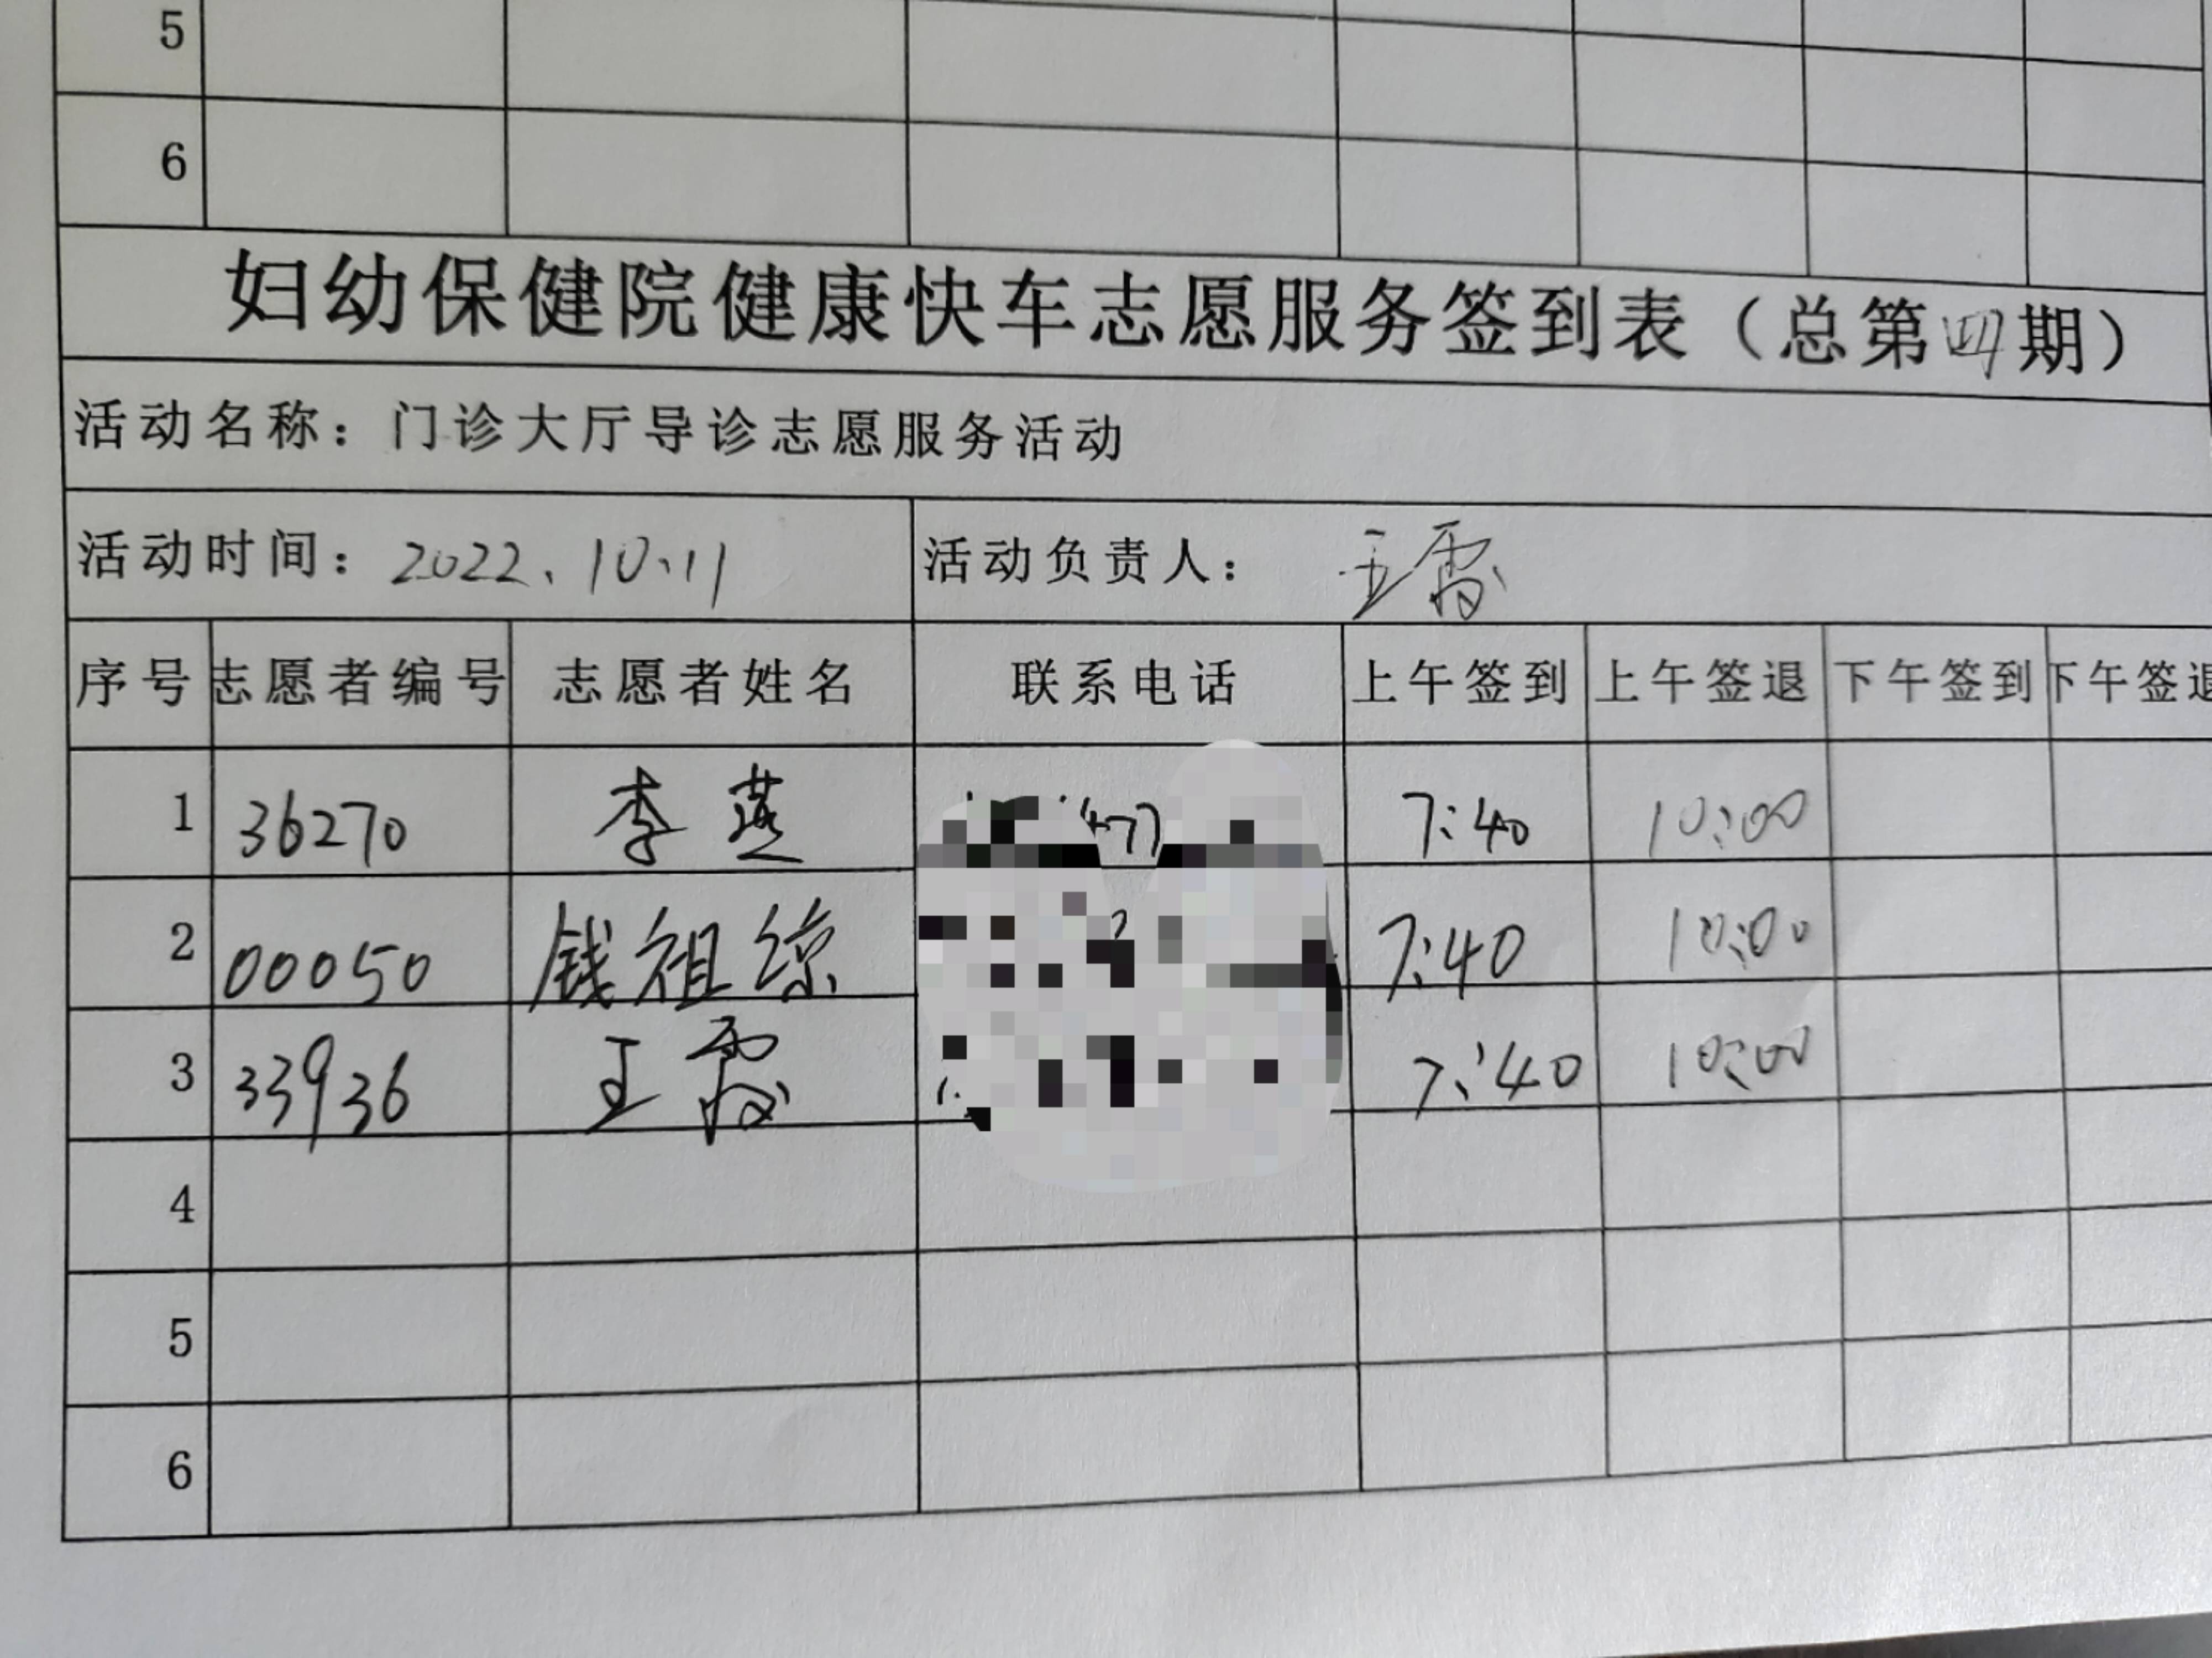 5
6
妇幼保健院健康快车志愿服务签到表（总第四期）
活动名称：门诊大厅导诊志愿服务活动
活动时间：2022、10、11 活动负责人：王霞
序号 志愿者编号 志愿者姓名 联系电话 上午签到 上午签退 下午签到 下午签退
1 36270 李燕 7:40 10:00
2 00050 钱祖琼 7:40 10:00
3 33936 王霞 7:40 10:00
4
5
6